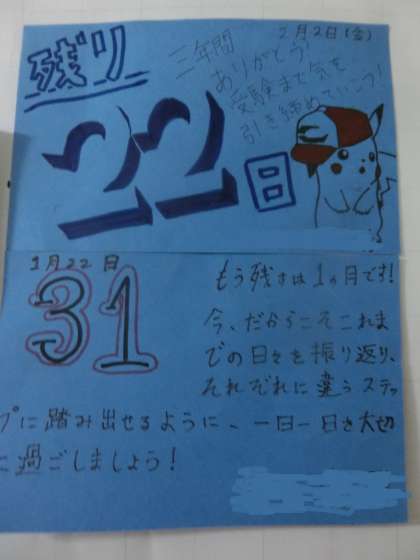 2月2日(金)
残り
22日
三年間
ありがとう!
受験まで気を
引き締めていこう!
1月22日
31
もう残すは1ヵ月です!
今、だからこそこれま
での日々を振り返り、
それぞれに違うステッ
プに踏み出せるように、一日一日を大切
に過ごしましょう!